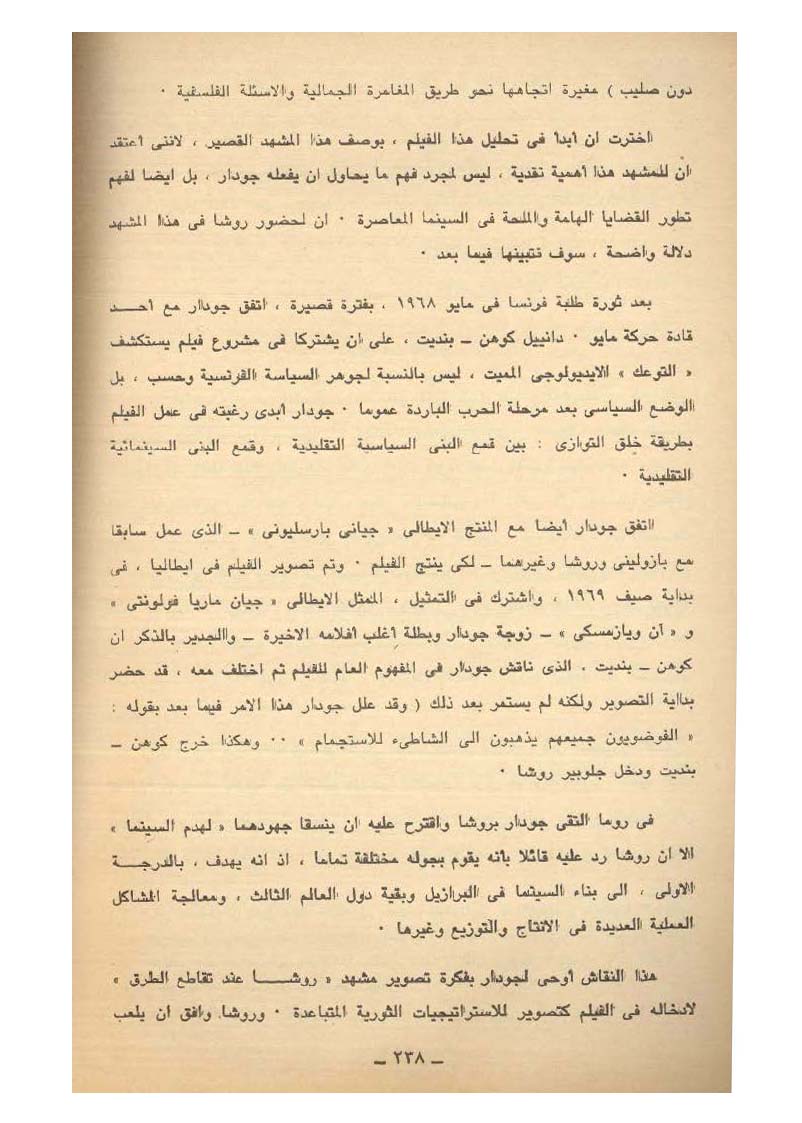 دون صليب ) مغيرة اتجاهها نحو طريق المغامرة الجمالية والاسئلة الفلسفية ٠
اخترت ان أبدأ فى تحليل هذا الفيلم ، بوصف هذا المشهد القصير ، لاننى أعتقد
أن للمشهد هذا أهمية نقدية ، ليس لمجرد فهم ما يحاول ان يفعله جودار ، بل ايضا لفهم
تطور القضايا الهامة والملحة فى السينما المعاصرة ٠ ان لحضور روشا فى هذا المشهد
دلالة واضحة ، سوف نتبينها فيما بعد ٠
بعد ثورة طلبة فرنسا فى مايو ١٩٦٨ ، بفترة قصيرة ، اتفق جودار مع أحــد
قادة حركة مايو ٠ دانييل كوهن ــ بنديت ، على ان يشتركا فى مشروع فيلم يستكشف
« التوعك » الايديولوجى المميت ، ليس بالنسبة لجوهر السياسة الفرنسية وحسب ، بل
الوضع السياسى بعد مرحلة الحرب الباردة عموما ٠ جودار أبدى رغبته فى عمل الفيلم
بطريقة خلق التوازى : بين قمع البنى السياسية التقليدية ، وقمع البنى السينمائية
التقليدية ٠
اتفق جودار أيضا مع المنتج الايطالى « جيانى بارسليونى » ــ الذى عمل سابقا
مع بازولينى وروشا وغيرهما ــ لكى ينتج الفيلم ٠ وتم تصوير الفيلم فى ايطاليا ، فى
بداية صيف ١٩٦٩ ، واشترك فى التمثيل ، الممثل الايطالى « جيان ماريا فولونتى »
و « آن ويازمسكى » ــ زوجة جودار وبطلة أغلب أفلامه الاخيرة ــ والجدير بالذكر ان
كوهن ــ بنديت ، الذى ناقش جودار فى المفهوم العام للفيلم ثم اختلف معه ، قد حضر
بداية التصوير ولكنه لم يستمر بعد ذلك ( وقد علل جودار هذا الامر فيما بعد بقوله :
« الفوضويون جميعهم يذهبون الى الشاطىء للاستجمام » ٠٠ وهكذا خرج كوهن ــ
بنديت ودخل جلوبير روشا ٠
فى روما التقى جودار بروشا واقترح عليه ان ينسقا جهودهما « لهدم السينما »
الا ان روشا رد عليه قائلا بأنه يقوم بجوله مختلفة تماما ، اذ انه يهدف ، بالدرجــة
الاولى ، الى بناء السينما فى البرازيل وبقية دول العالم الثالث ، ومعالجة المشاكل
العملية العديدة فى الانتاج والتوزيع وغيرها ٠
هذا النقاش أوحى لجودار بفكرة تصوير مشهد « روشــــا عند تقاطع الطرق »
لادخاله فى الفيلم كتصوير للاستراتيجيات الثورية المتباعدة ٠ وروشا وافق ان يلعب
ــ ٢٣٨ ــ